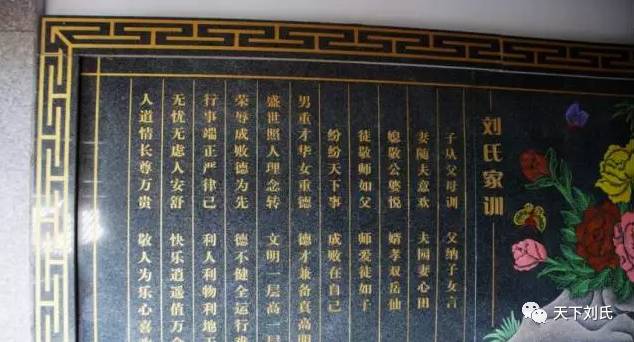 刘氏家训
子从父母训 父纳子女言
妻随夫意欢 夫园妻心田
媳敬公婆悦 婿孝双岳仙
徒敬师如父 师爱徒如子
纷纷天下事 成败在自己
男重才华女重德 德才兼备真高明
盛世照人理念转 文明一层高一层
荣辱成败德为先 德不健全运行难
行事端正严律己 利人利物利地
无忧无虑人安舒 快乐逍遥值万
人道情长尊万贵 敬人为乐心喜
天下刘氏